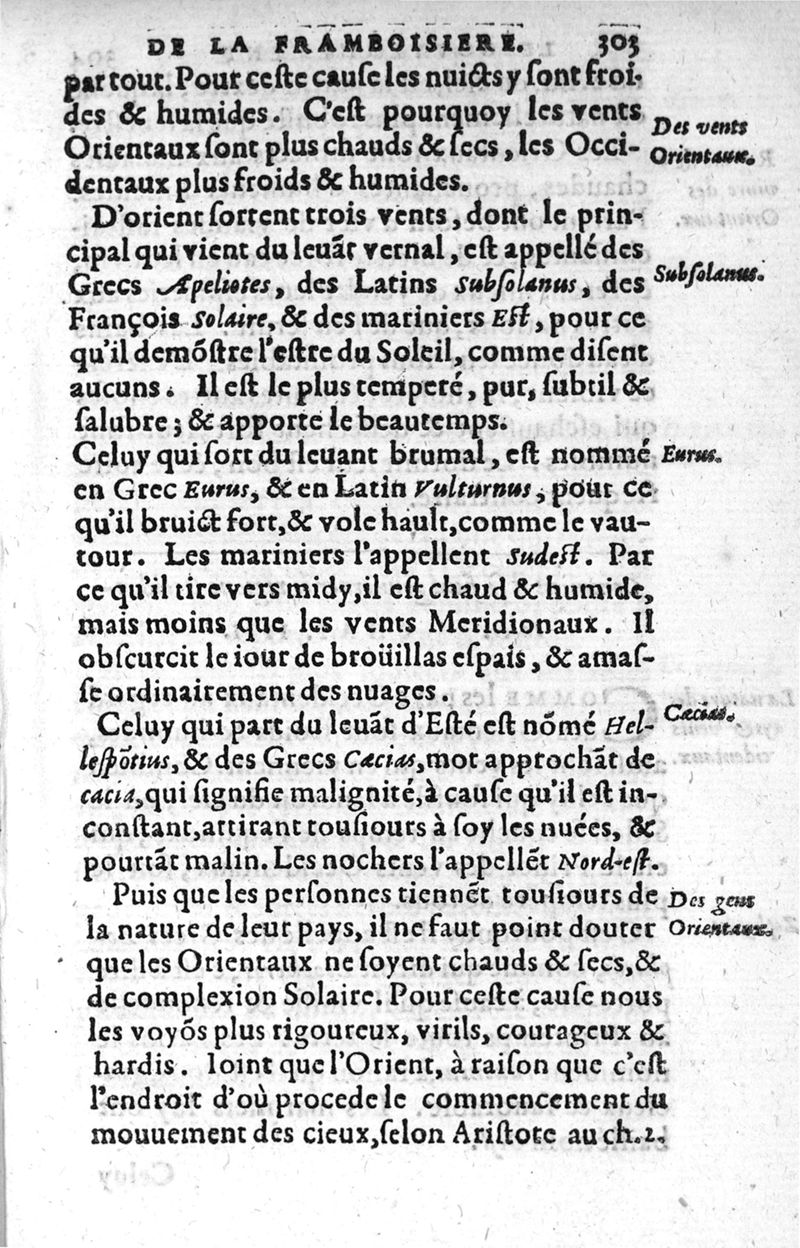 DE LA FRAMBOISIERE. 303
par tout. Pour ceste cause les nuicts y sont froi-
des & humides. C'est pourquoy les vents
Orientaux sont plus chauds & secs, les Occi-
dentaux plus froids & humides.
Des vents
Orientaux.
D'orient sortent trois vents, dont le prin-
cipal qui vient du leuãt vernal, est appellé des
Grecs Apeliotes, des Latins Subsolanus, des
Subsolanus.
François Solaire, & des mariniers Est, pour ce
qu'il demõstre l'estre du Soleil, comme disent
aucuns. Il est le plus temperé, pur, subtil &
salubre; & apporte le beau temps.
Celuy qui sort du leuant brumal, est nommé
Eurus.
en Grec Eurus, & en Latin Vulturnus, pour ce
qu'il bruict fort, & vole hault, comme le vau-
tour. Les mariniers l'appellent Sudest. Par
ce qu'il tire vers midy, il est chaud & humide,
mais moins que les vents Meridionaux. Il
obscurcit le iour de broüillas espais, & amas-
se ordinairement des nuages.
Celuy qui part du leuãt d'Esté est nõmé Hel-
Cæcias.
lespõtius, & des Grecs Cæcias, mot approchãt de
cacia, qui signifie malignité, à cause qu'il est in-
constant, attirant tousiours à soy les nuées, &
pourtãt malin. Les nochers l'appellẽt Nord-est.
Puis que les personnes tiennẽt tousiours de
la nature de leur pays, il ne faut point douter
Des gens
Orientaux.
que les Orientaux ne soyent chauds & secs, &
de complexion Solaire. Pour ceste cause nous
les voyõs plus rigoureux, virils, courageux &
hardis. Ioint que l'Orient, à raison que c'est
l'endroit d'où procede le commencement du
mouuement des cieux, selon Aristote au ch. 2.